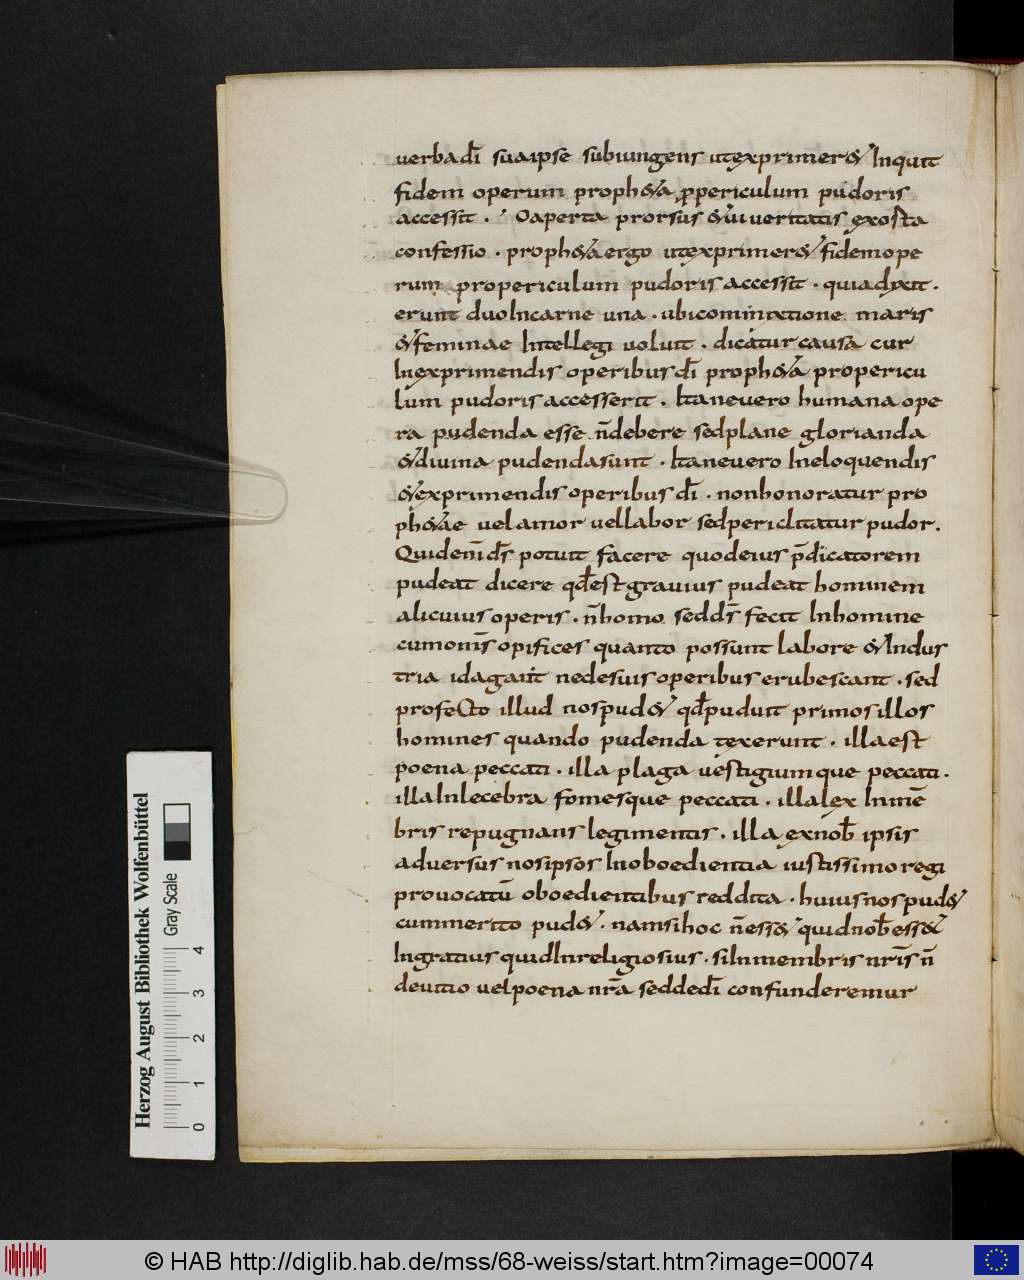 verbadī suaipse subiungens utexprimer& Inquit
fidem operum proph&a ꝓpericulum pudoris
accessit . Oaperta prorsus &ui veritatis exosta
confessio . proph&aergo utexprimer& fidemope
rum propericulum pudorisaccessit . quiadyxit .
erunt duoIncarne una . ubicominixtione maris
&feminae Intellegi voluit . dicatur causa cur
Inexprimendis operibusdī proph&a propericu
lum pudorisaccesserit . Itaneuero humana ope
ra pudenda esse n̄debere sedplane glorianda
&divina pudendasunt . Itaneuero Ineloquendis
&exprimendisoperibus dī . nonhonoratur pro
ph&ae uelamor uellabor sedpericlitatur pudor .
Quidenīds̄ potuit facere quodeius p̄dicatorem
pudeat dicere qd̄estgravius pudeat hominem
alicuius operis . n̄homo sedds̄ fecit Inhomine
cumomīs opifices quanto possunt labore &Indus
tria idagant nedesuisoperibus erubescant . sed
profecto illud nospud& qd̄puduit primosillos
homines quando pudenda texerunt . illaest
poena peccati . illa plaga vestigiumque peccati .
illaInlecebra fomesque peccati . illalex Inmē
bris repugnans legimentis . illa exnob̄ ipsis
adversus nosipsos Inoboedientia iustissimoregi
provocatū oboedientibus reddita . huiusnospud&
cummerito pud& . namsihoc n̄ess& quidnob̄ess&
Ingratius quidInreligiosius . siInmembris nr̄is n̄
deuitio uelpoena nr̄a seddedī confunderemur
Herzog August Bibliothek Wolfenbüttel
Gray Scale
0 1 2 3 4
© HAB http://diglib.hab.de/mss/68-weiss/start.htm?image=00074